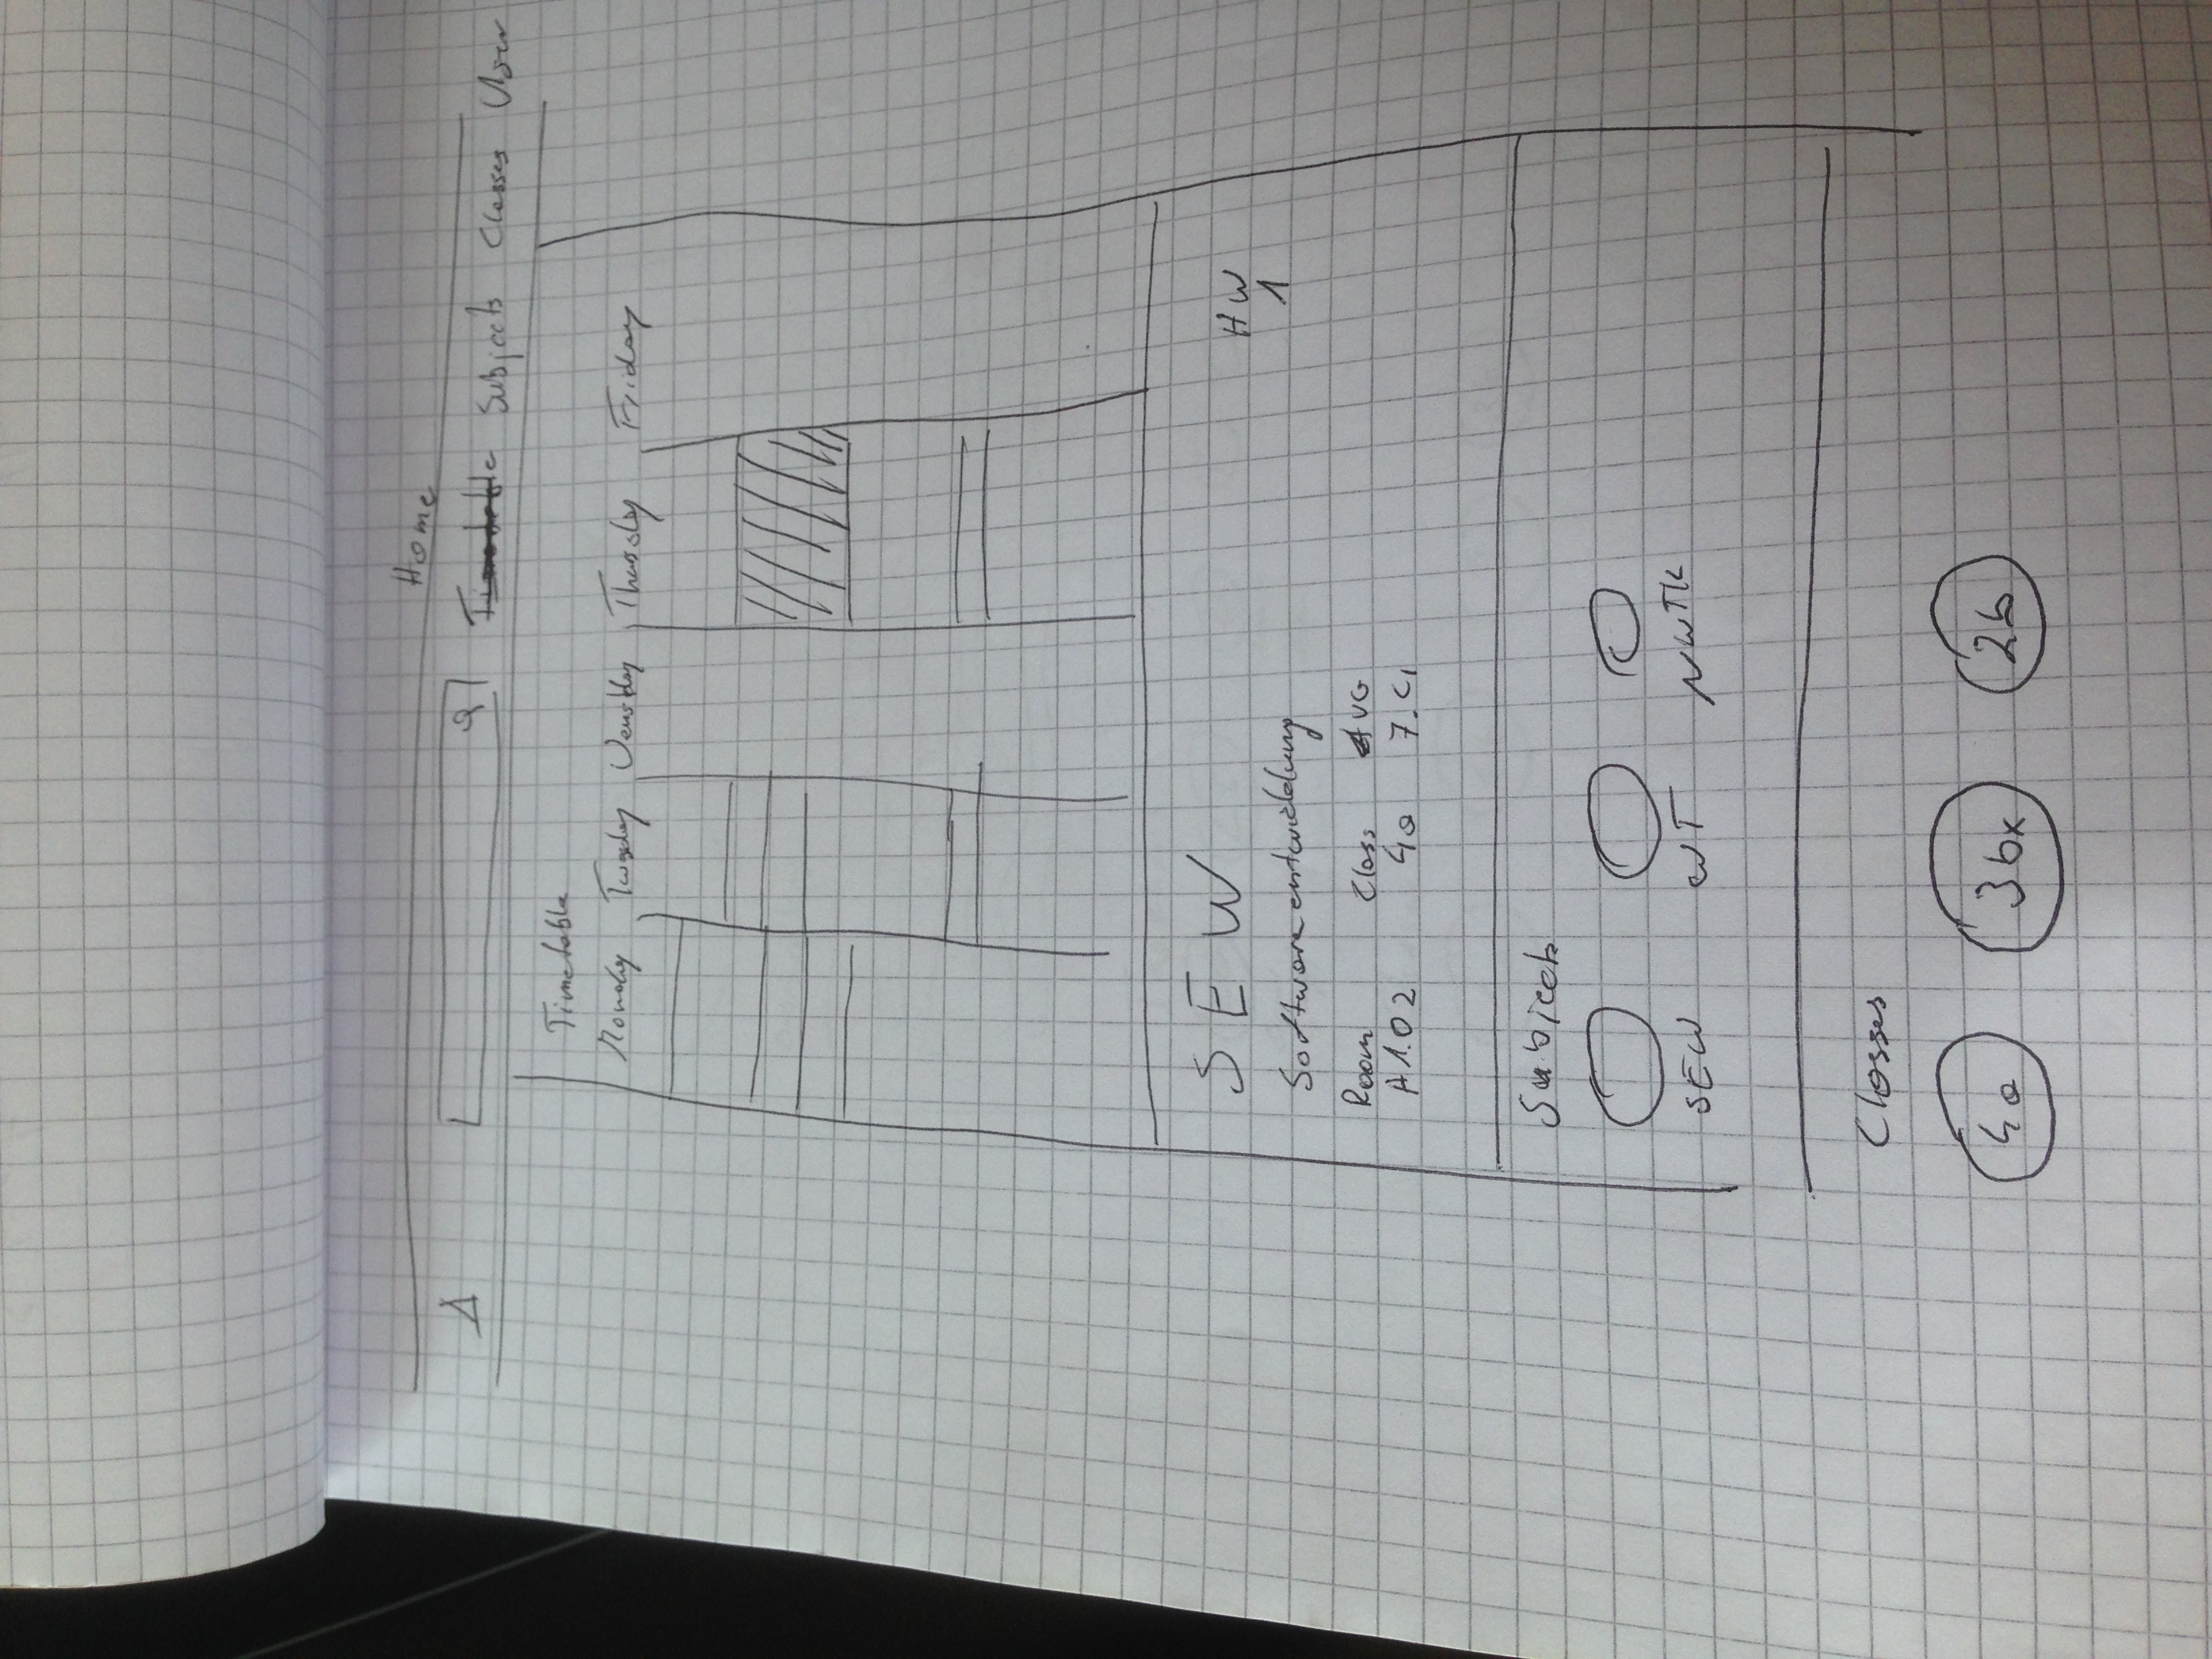 Home
Timetable Subjects Classes User
Timetable
Monday Tuesday Thursday Friday
SEW
HW
1
Softwareentwicklung
Room Class AVG
A1.02 4a
Subjects
SEW WT NWTK
Classes
4a 3bx 2b